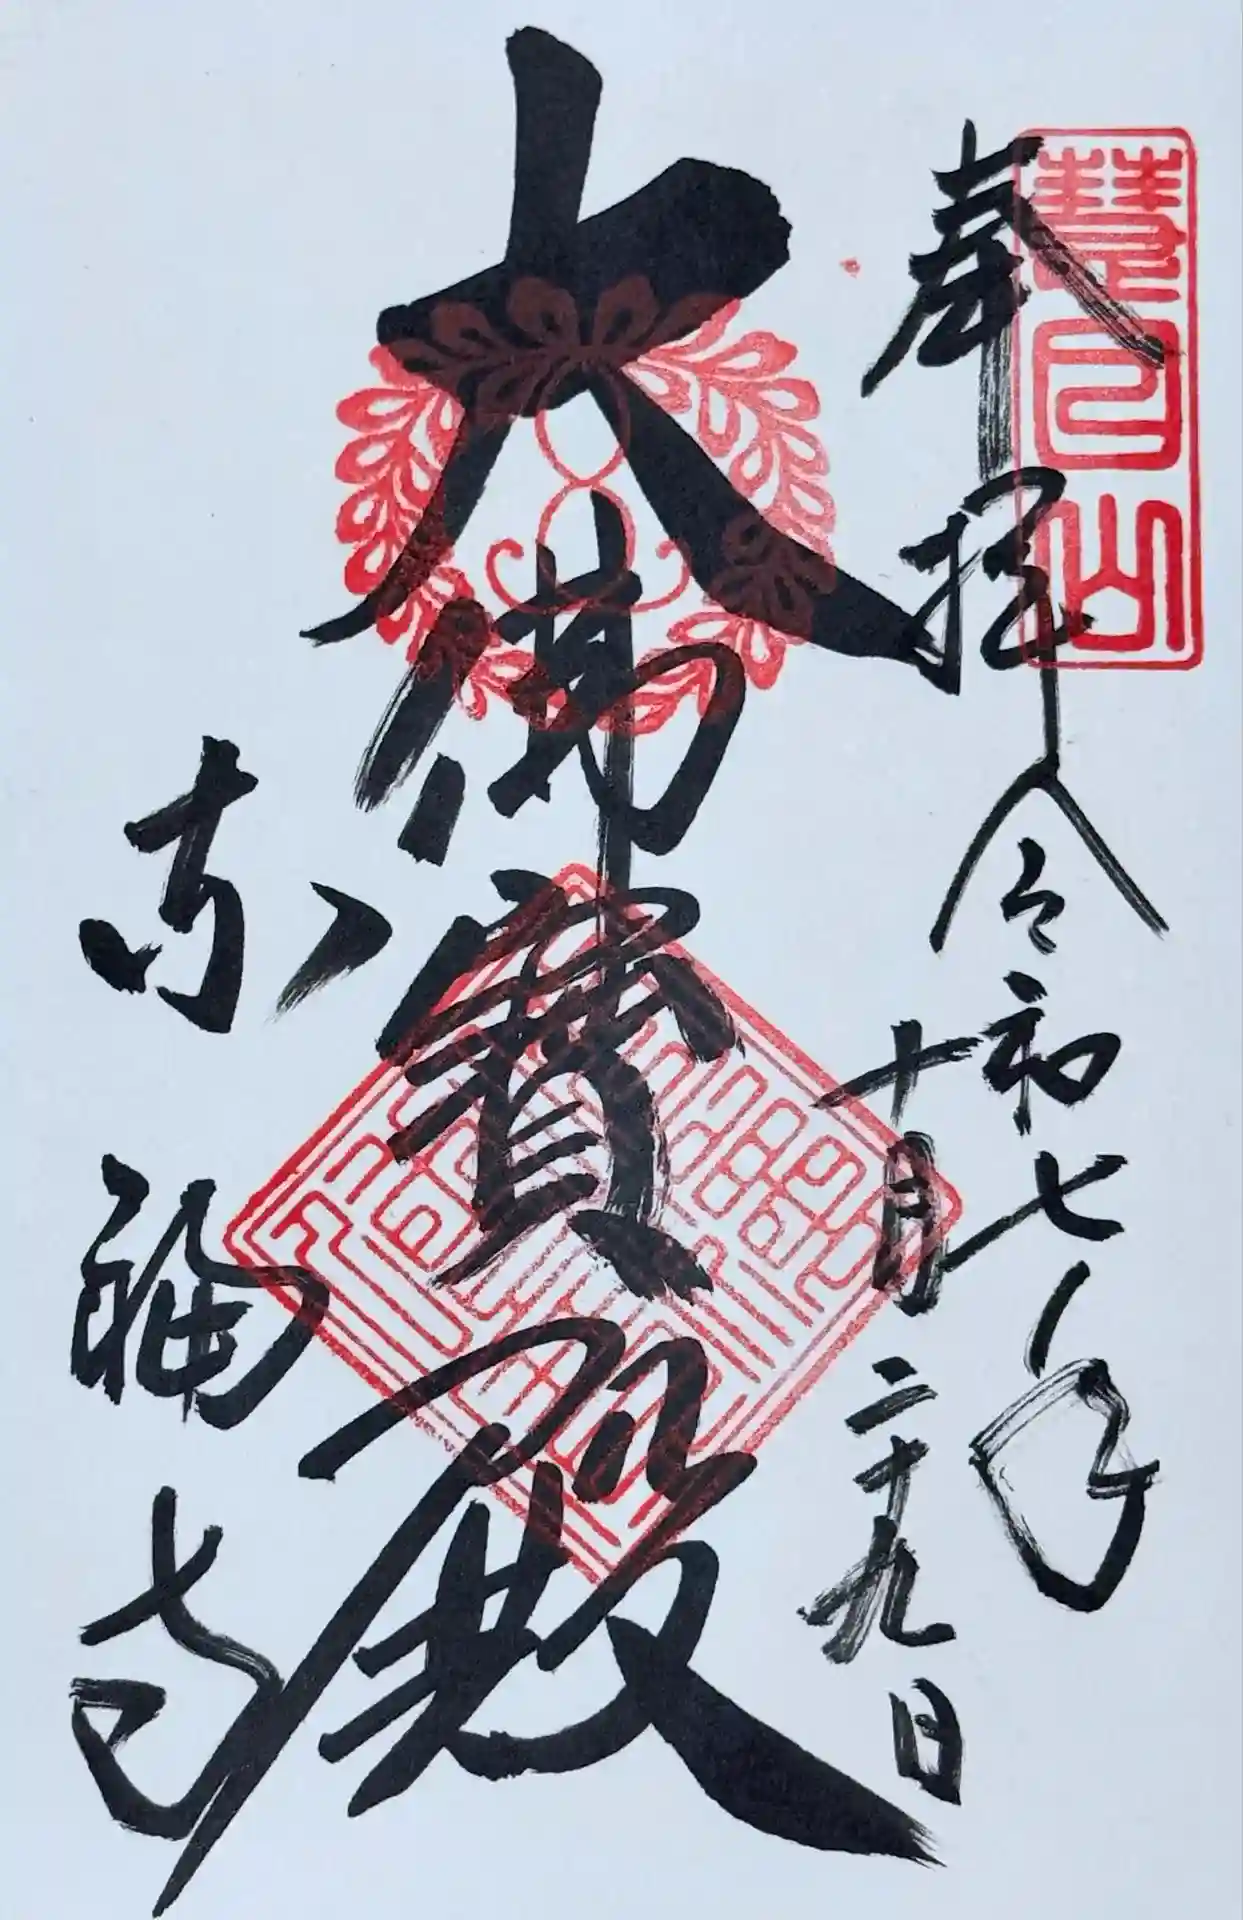 奉拝
令和七年
十月二十九日
慧日山
大佛寶殿
東福寺